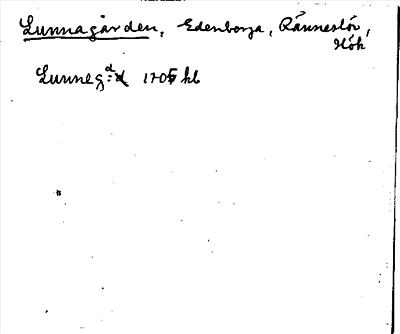 Lunnagården, Edenberga, Ränneslöv,
Hök
Lunneg:d 1705 kb